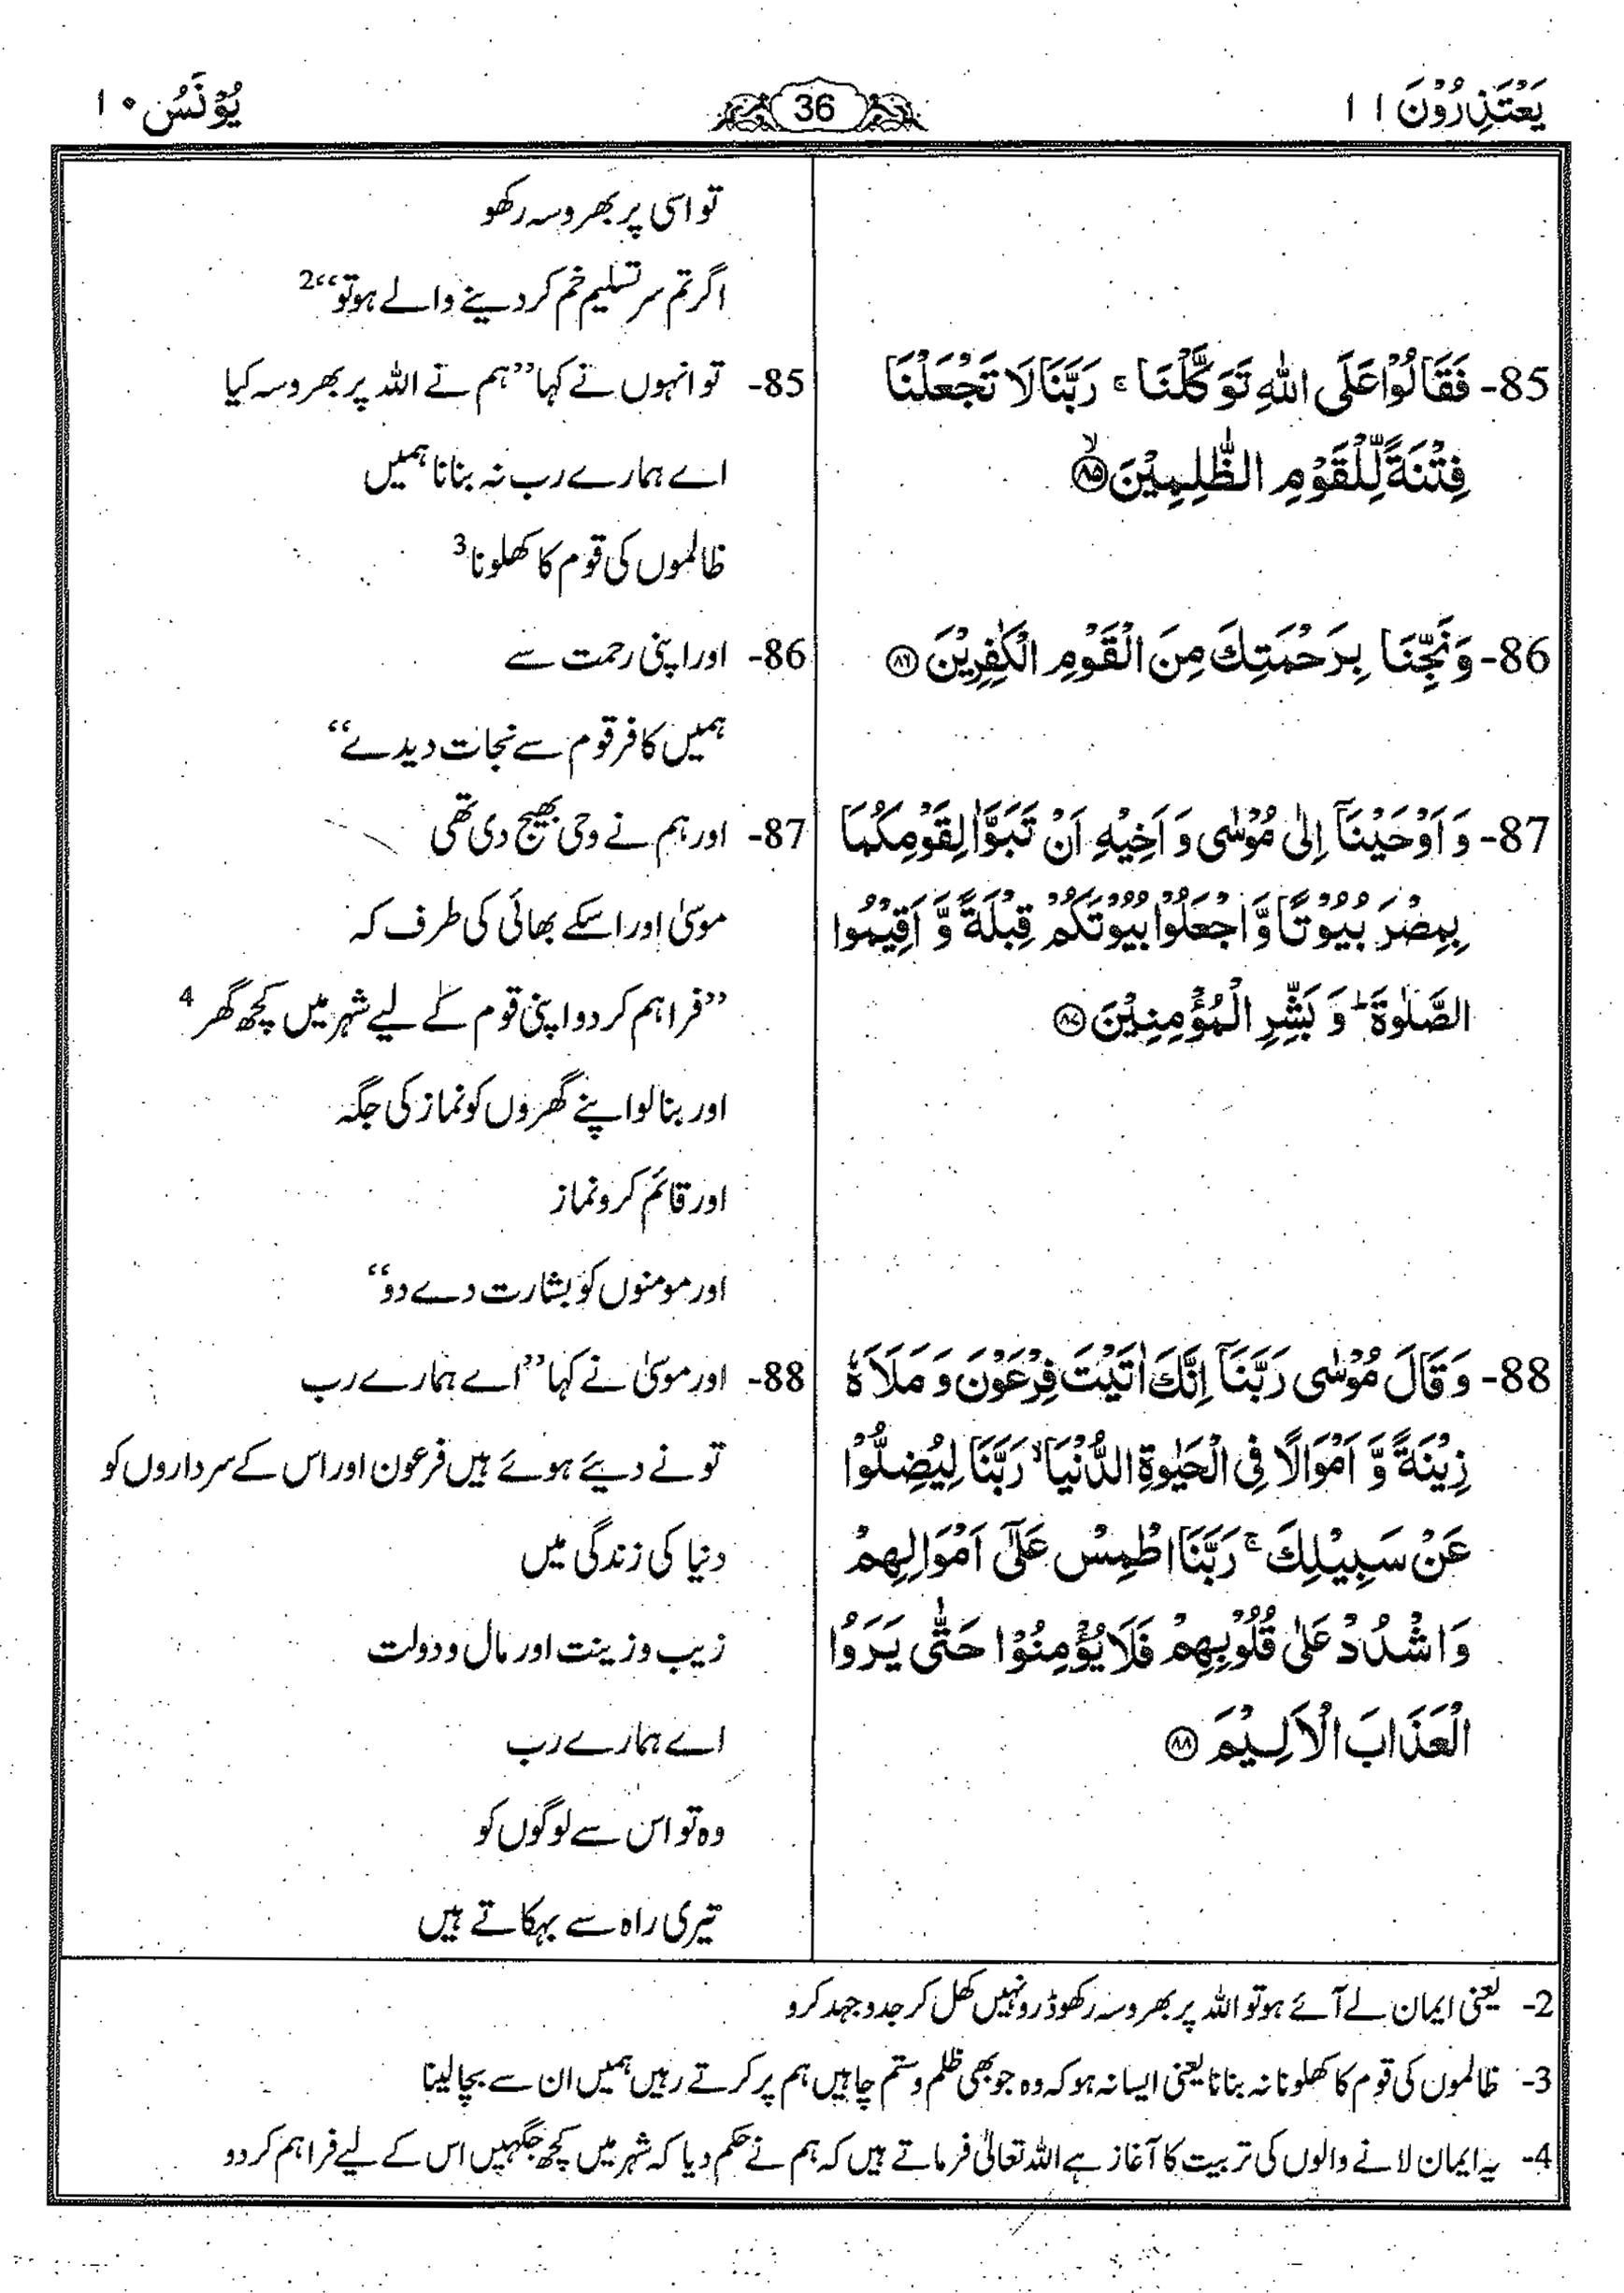 یَعْتَذِرُوْنَ ۱۱
36
یُوْنُسَ ۱۰
85- فَقَالُوْا عَلَی اللّٰهِ تَوَكَّلْنَا ۚ رَبَّنَا لَا تَجْعَلْنَا
فِتْنَةً لِّلْقَوْمِ الظّٰلِمِیْنَ ۙ﴿۸۵﴾
86- وَنَجِّنَا بِرَحْمَتِكَ مِنَ الْقَوْمِ الْكٰفِرِیْنَ ﴿۸۶﴾
87- وَ اَوْحَیْنَاۤ اِلٰی مُوْسٰی وَ اَخِیْهِ اَنْ تَبَوَّاٰ لِقَوْمِكُمَا
بِمِصْرَ بُیُوْتًا وَّ اجْعَلُوْا بُیُوْتَكُمْ قِبْلَةً وَّ اَقِیْمُوا
الصَّلٰوةَ ؕ وَ بَشِّرِ الْمُؤْمِنِیْنَ ﴿۸۷﴾
88- وَ قَالَ مُوْسٰی رَبَّنَاۤ اِنَّكَ اٰتَیْتَ فِرْعَوْنَ وَ مَلَاَهٗ
زِیْنَةً وَّ اَمْوَالًا فِی الْحَیٰوةِ الدُّنْیَا ۙ رَبَّنَا لِیُضِلُّوْا
عَنْ سَبِیْلِكَ ۚ رَبَّنَا اطْمِسْ عَلٰۤی اَمْوَالِهِمْ
وَ اشْدُدْ عَلٰی قُلُوْبِهِمْ فَلَا یُؤْمِنُوْا حَتّٰی یَرَوُا
الْعَذَابَ الْاَلِیْمَ ﴿۸۸﴾
تو اسی پر بھروسہ رکھو
اگر تم سر تسلیم خم کر دینے والے ہو تو“2
85- تو انہوں نے کہا ”ہم نے اللہ پر بھروسہ کیا
اے ہمارے رب نہ بنانا ہمیں
ظالموں کی قوم کا کھلونا3
86- اور اپنی رحمت سے
ہمیں کافر قوم سے نجات دیدے“
87- اور ہم نے وحی بھیج دی تھی
موسیٰ اور اسکے بھائی کی طرف کہ
”فراہم کر دو اپنی قوم کے لیے شہر میں کچھ گھر4
اور بنا لو اپنے گھروں کو نماز کی جگہ
اور قائم کرو نماز
اور مومنوں کو بشارت دے دو“
88- اور موسیٰ نے کہا ”اے ہمارے رب
تو نے دیئے ہوئے ہیں فرعون اور اس کے سرداروں کو
دنیا کی زندگی میں
زیب وزینت اور مال و دولت
اے ہمارے رب
وہ تو اس سے لوگوں کو
تیری راہ سے بہکاتے ہیں
2- یعنی ایمان لے آئے ہو تو اللہ پر بھروسہ رکھو ڈرو نہیں کھل کر جدوجہد کرو
3- ظالموں کی قوم کا کھلونا نہ بنانا یعنی ایسا نہ ہو کہ وہ جو بھی ظلم و ستم چاہیں ہم پر کرتے رہیں ہمیں ان سے بچا لینا
4- یہ ایمان لانے والوں کی تربیت کا آغاز ہے اللہ تعالیٰ فرماتے ہیں کہ ہم نے حکم دیا کہ شہر میں کچھ جگہیں اس کے لیے فراہم کر دو